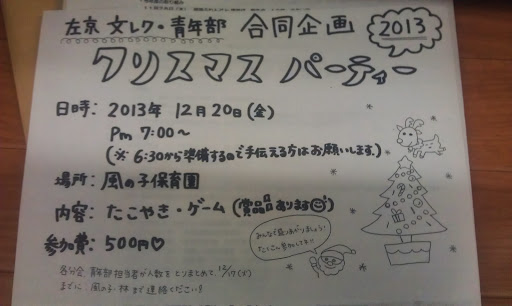 左京 文レク・青年部 合同企画 2013
クリスマス パーティー
日時: 2013年 12月20日(金)
Pm 7:00〜
(※ 6:30から準備するので手伝える方はお願いします。)
場所: 風の子保育園
内容: たこやき・ゲーム (賞品あります)
みんなで盛り上がりましょう!
たくさん参加して下さい!!
参加費: 500円♡
各分会、青年部担当者が人数をとりまとめて、12/17(火)
までに 風の子・林まで連絡ください!